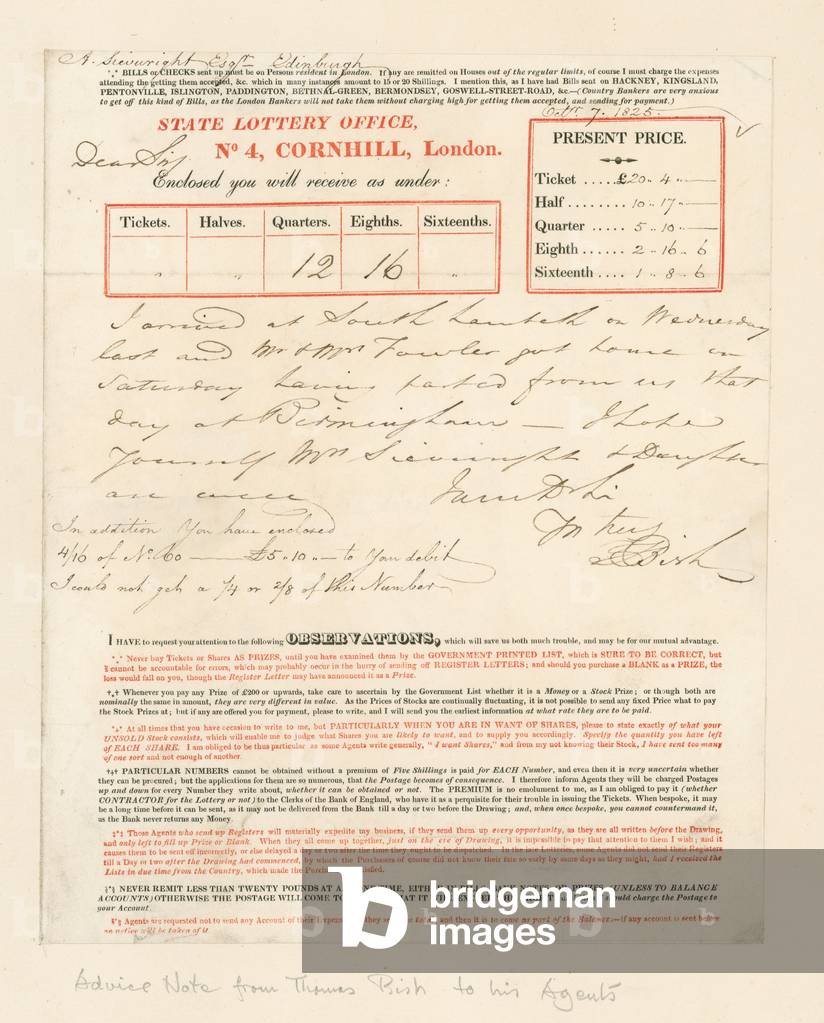 A. Sievwright Esqr. Edinburgh
*,* BILLS or CHECKS sent up must be on Persons resident in London. If any are remitted on Houses out of the regular limits, of course I must charge the expenses
attending the getting them accepted, &c. which in many instances amount to 15 or 20 Shillings. I mention this, as I have had Bills sent on HACKNEY, KINGSLAND,
PENTONVILLE, ISLINGTON, PADDINGTON, BETHNAL-GREEN, BERMONDSEY, GOSWELL-STREET-ROAD, &c.—(Country Bankers are very anxious
to get off this kind of Bills, as the London Bankers will not take them without charging high for getting them accepted, and sending for payment.)
Octr. 7. 1825.
STATE LOTTERY OFFICE,
Dear Sir,
No 4, CORNHILL, London.
Enclosed you will receive as under:
Tickets. Halves. Quarters. Eighths. Sixteenths.
" " 12 16 "
PRESENT PRICE.
Ticket ..... £20 .. 4 .. —
Half ........ 10 .. 17 .. —
Quarter ..... 5 .. 10 .. —
Eighth ...... 2 .. 16 .. 6
Sixteenth .... 1 .. 8 .. 6
I arrived at South Lambeth on Wednesday
last and Mr & Mrs Fowler got home on
Saturday having parted from us that
day at Birmingham — I hope
Yourself Mrs Sievwright & Daughter
are well I am Dr Sir
Yrs truly
T Bish
In addition You have enclosed
4/16 of No. 60 — £5 .. 10 .. " — to Your debit
I could not get a 1/4 or 2/8 of this Number
I HAVE to request your attention to the following OBSERVATIONS, which will save us both much trouble, and may be for our mutual advantage.
*,* Never buy Tickets or Shares AS PRIZES, until you have examined them by the GOVERNMENT PRINTED LIST, which is SURE TO BE CORRECT, but
I cannot be accountable for errors, which may probably occur in the hurry of sending off REGISTER LETTERS; and should you purchase a BLANK as a PRIZE, the
loss would fall on you, though the Register Letter may have announced it as a Prize.
†,† Whenever you pay any Prize of £200 or upwards, take care to ascertain by the Government List whether it is a Money or a Stock Prize; or though both are
nominally the same in amount, they are very different in value. As the Prices of Stocks are continually fluctuating, it is not possible to send any fixed Price what to pay
the Stock Prizes at; but if any are offered you for payment, please to write, and I will send you the earliest information at what rate they are to be paid.
*,* At all times that you have occasion to write to me, but PARTICULARLY WHEN YOU ARE IN WANT OF SHARES, please to state exactly of what your
UNSOLD Stock consists, which will enable me to judge what Shares you are likely to want, and to supply you accordingly. Specify the quantity you have left
of EACH SHARE. I am obliged to be thus particular as some Agents write generally, "I want Shares," and from my not knowing their Stock, I have sent too many
of one sort and not enough of another.
†,† PARTICULAR NUMBERS cannot be obtained without a premium of Five Shillings is paid for EACH Number, and even then it is very uncertain whether
they can be procured; but the applications for them are so numerous, that the Postage becomes of consequence. I therefore inform Agents they will be charged Postages
up and down for every Number they write about, whether it can be obtained or not. The PREMIUM is no emolument to me, as I am obliged to pay it (whether
CONTRACTOR for the Lottery or not) to the Clerks of the Bank of England, who have it as a perquisite for their trouble in issuing the Tickets. When bespoke, it may
be a long time before it can be sent, as it may not be delivered from the Bank till a day or two before the Drawing; and, when once bespoke, you cannot countermand it,
as the Bank never returns any Money.
‡,‡ Those Agents who send up Registers will materially expedite my business, if they send them up every opportunity, as they are all written before the Drawing,
and only left to fill up Prize or Blank. When they all come up together, just on the eve of Drawing, it is impossible to pay that attention to them I wish; and it
causes them to be sent off incorrectly, or else delayed a day or two after the time they ought to be dispatched. In the last Lotteries, some Agents did not send their Registers
till a Day or two after the Drawing had commenced, by which the Purchasers of course did not know their fate so early by some days as they might, had I received the
Lists in due time from the Country, which made the
NEVER REMIT LESS THAN TWENTY POUNDS AT A
ACCOUNTS) OTHERWISE THE POSTAGE WILL COME TO
your Account.
Agents are requested not to send any Account of their
no notice will be taken of it.
b bridgeman
images
Advice Note from Thomas Bish to his Agents